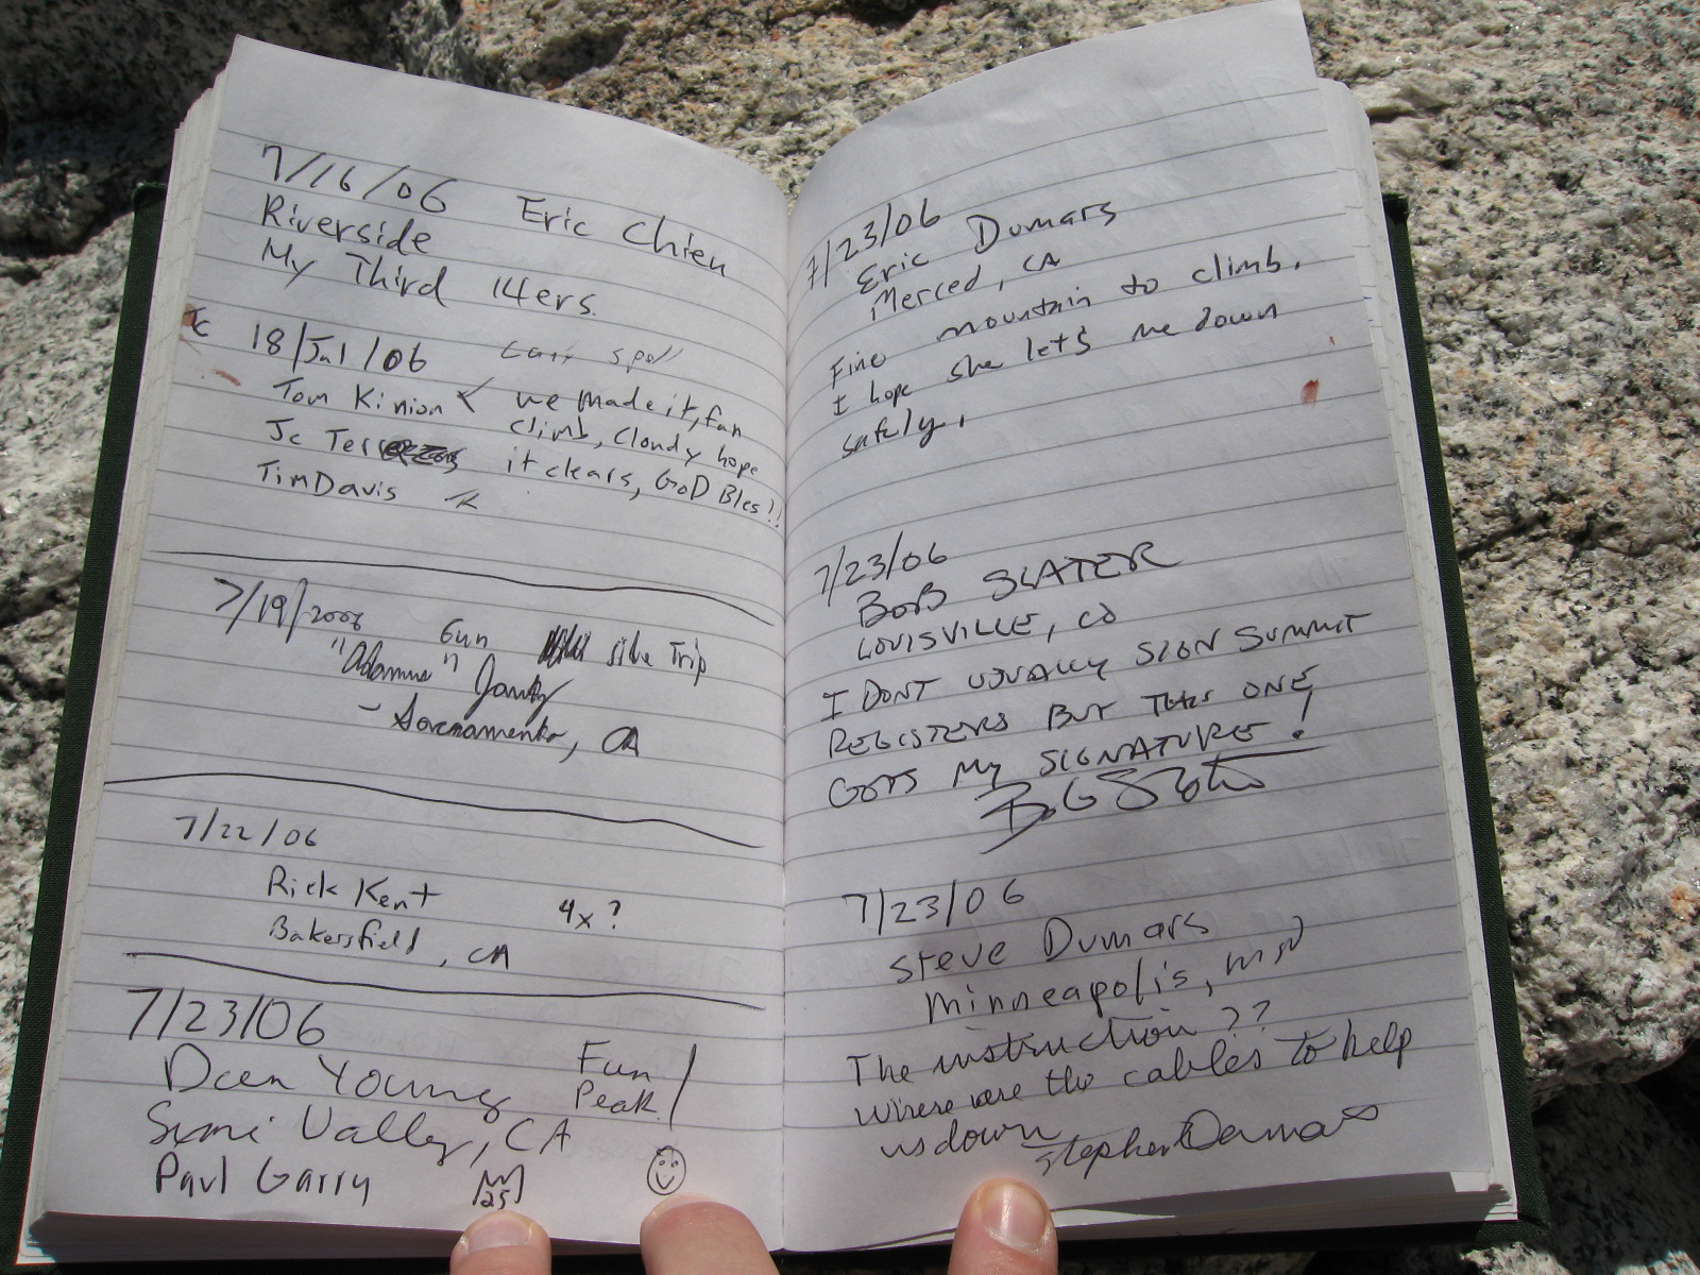 7/16/06 Eric Chien
Riverside
My Third 14ers.
JC 18/Jul/06 Can't spell
Tom Kinion we made it, fun
climb, cloudy hope
Jc Ter it clears, GOD Bles!!
Tim Davis
7/19/2006 Gun side Trip
"Adamus"
- Sacramento, CA
7/22/06
Rick Kent 4x?
Bakersfield, CA
7/23/06
Deen Young Fun
Simi Valley, CA Peak!
Paul Garry 25
7/23/06
Eric Dumars
Merced, CA
Fine mountain to climb.
I hope she let's me down
safely.
7/23/06
BOB SLATER
LOUISVILLE, CO
I DONT USUALLY SIGN SUMMIT
REGISTERS BUT THIS ONE
GETS MY SIGNATURE!
Bob Slater
7/23/06
Steve Dumars
Minneapolis, MN
The instruction??
Where are the cables to help
us down
Stephen Dumars